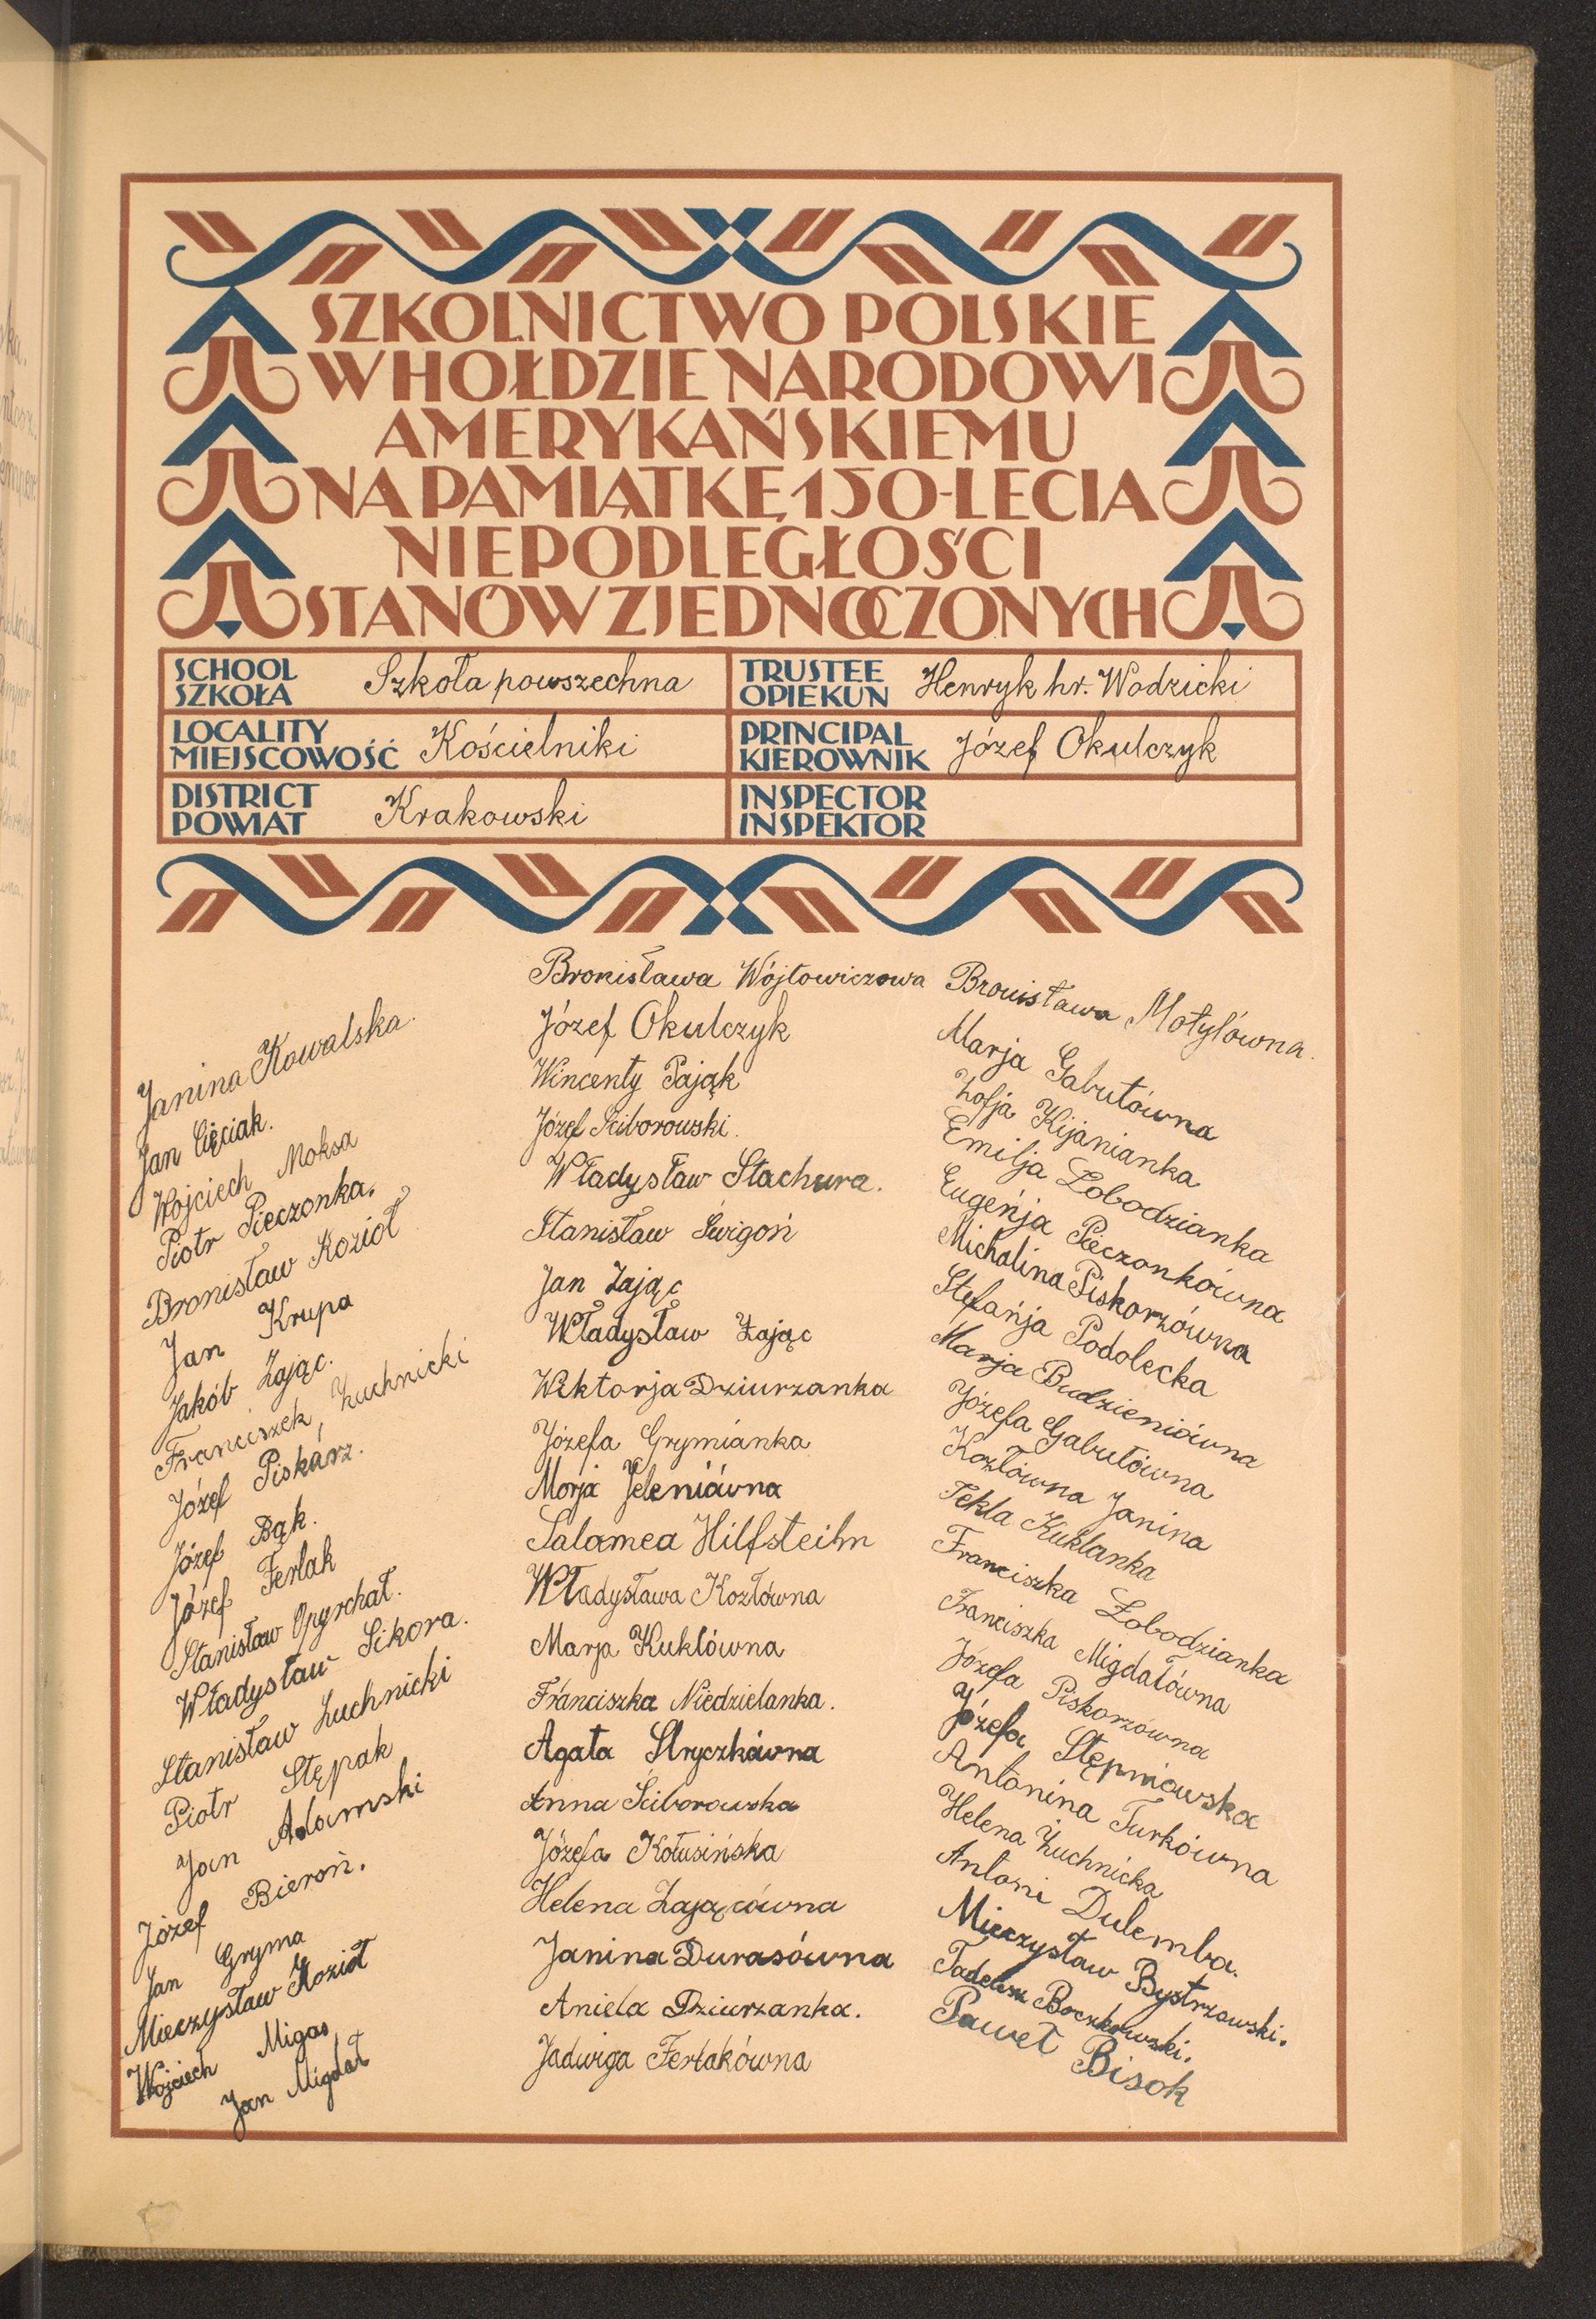 SZKOLNICTWO POLSKIE
W HOŁDZIE NARODOWI
AMERYKAŃSKIEMU
NA PAMIĄTKĘ 150-LECIA
NIEPODLEGŁOŚCI
STANÓW ZJEDNOCZONYCH
SCHOOL
SZKOŁA
Szkoła powszechna
TRUSTEE
OPIEKUN
Henryk hr. Wodzicki
LOCALITY
MIEJSCOWOŚĆ
Kościelniki
PRINCIPAL
KIEROWNIK
Józef Okulczyk
DISTRICT
POWIAT
Krakowski
INSPECTOR
INSPEKTOR
Janina Kowalska.
Jan Cięciak.
Wojciech Moksa
Piotr Pieczonka.
Bronisław Kozioł
Jan Krupa
Jakób Zając.
Franciszek Żuchnicki
Józef Piskarz.
Józef Bąk.
Józef Ferlak
Stanisław Opyrchał.
Władysław Sikora.
Stanisław Żuchnicki
Piotr Stępak
Jan Adamski
Józef Bieroń.
Jan Gryma
Mieczysław Kozioł
Wojciech Migas
Jan Migdał
Bronisława Wójtowiczowa
Józef Okulczyk
Wincenty Pająk
Józef Ściborowski.
Władysław Stachura.
Stanisław Świgoń
Jan Zając
Władysław Zając
Wiktorja Dziurzanka
Józefa Grymianka
Marja Jeleniówna
Salamea Hilfsteihn
Władysława Kozłówna
Marja Kuklówna
Franciszka Niedzielanka.
Agata Stryczkówna
Anna Ściborowska
Józefa Kołusińska
Helena Zającówna
Janina Durasówna
Aniela Dziurzanka.
Jadwiga Ferlakówna
Bronisława Motylówna.
Marja Gabutówna
Zofja Kijanianka
Emilja Łobodzianka
Eugeńja Pieczonkówna
Michalina Piskorzówna
Stefańja Podolecka
Marja Budzieniówna
Józefa Gabutówna
Kozłówna Janina
Tekla Kuklanka
Franciszka Łobodzianka
Franciszka Migdałówna
Józefa Piskorzówna
Józefa Stępniowska
Antonina Turkówna
Helena Żuchnicka
Antoni Dulemba.
Mieczysław Bystrzowski.
Tadeusz Boczkowski.
Paweł Bisok